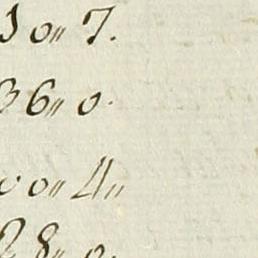 30〃 7.
36〃 0.
00〃 4〃
28〃 0.